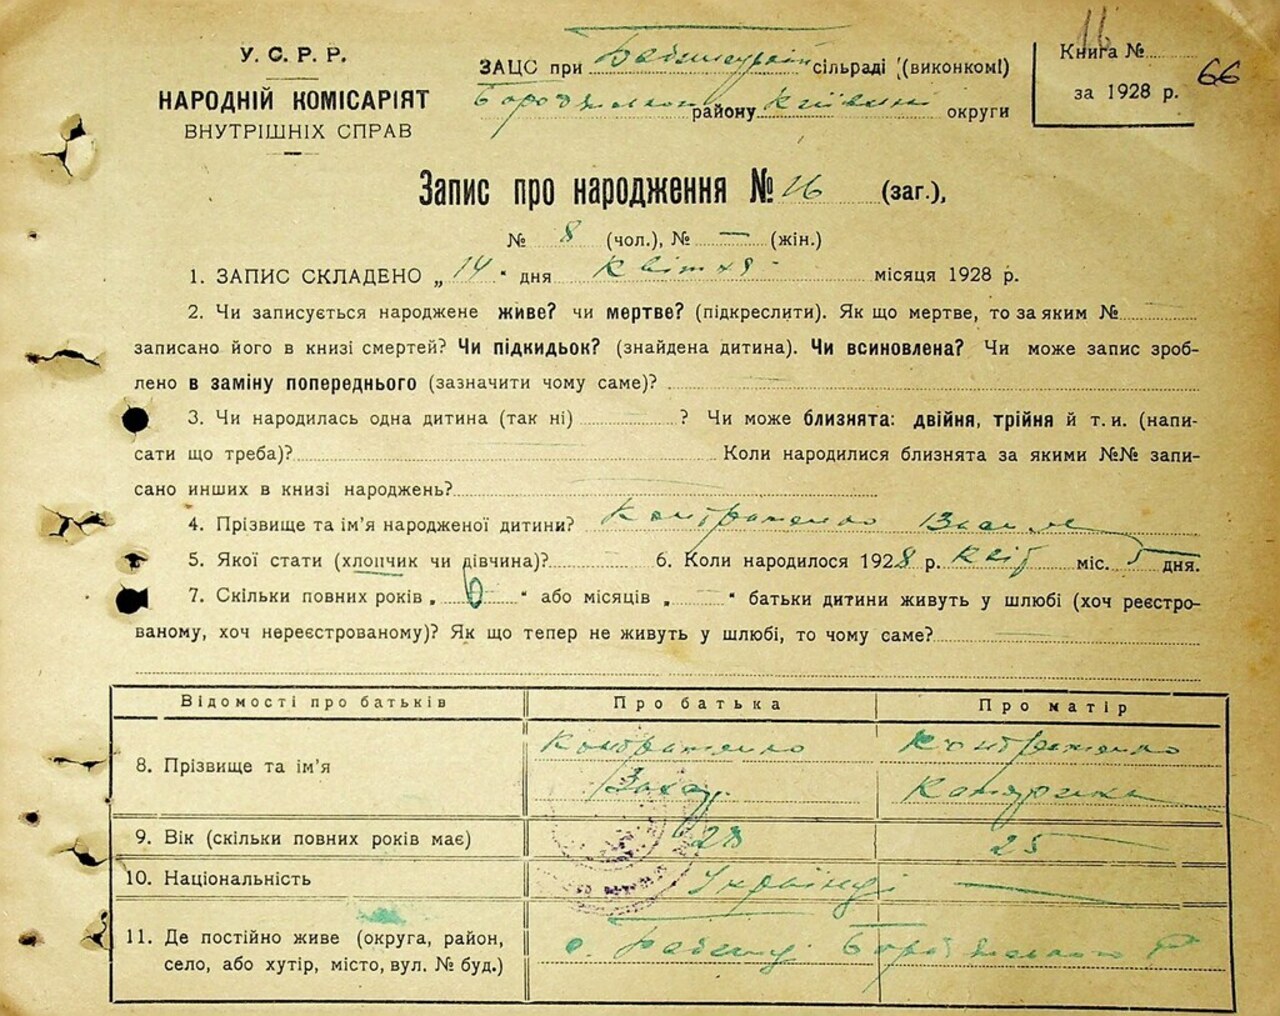 16
У. С. Р. Р.
НАРОДНІЙ КОМІСАРІЯТ
ВНУТРІШНІХ СПРАВ
ЗАЦС при сільраді (виконкомі)
району округи
Книга №
66
за 1928 р.
Запис про народження № 16 (заг.),
№ 8 (чол.), № — (жін.)
1. ЗАПИС СКЛАДЕНО „ 14 “ дня Квітня місяця 1928 р.
2. Чи записується народжене живе? чи мертве? (підкреслити). Як що мертве, то за яким №
записано його в книзі смертей? Чи підкидьок? (знайдена дитина). Чи всиновлена? Чи може запис зроб-
лено в заміну попереднього (зазначити чому саме)?
3. Чи народилась одна дитина (так ні) ? Чи може близнята: двійня, трійня й т. и. (напи-
сати що треба)? Коли народилися близнята за якими №№ запи-
сано инших в книзі народжень?
4. Прізвище та ім'я народженої дитини? Кондратенко
5. Якої стати (хлопчик чи дівчина)? 6. Коли народилося 1928 р. Квіт міс. 5 дня.
7. Скільки повних років „ 6 “ або місяців „ — “ батьки дитини живуть у шлюбі (хоч реєстро-
ваному, хоч нереєстрованому)? Як що тепер не живуть у шлюбі, то чому саме?
Відомості про батьків Про батька Про матір
8. Прізвище та ім'я Кондратенко Кондратенко
Захар Катерина
9. Вік (скільки повних років має) 28 25
10. Національність Українці
11. Де постійно живе (округа, район,
село, або хутір, місто, вул. № буд.) с. Бородянського р